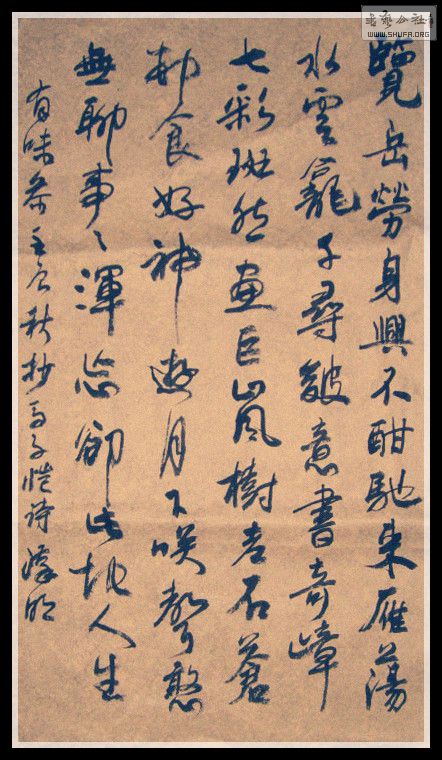 覽岳勞身興不酣馳來雁蕩
水雲龕孑尋皴意書奇嶂
七彩斑然畫巨嵐樹老石蒼
邨食好神遊月下咲聲憨
無聊事〻渾忘卻此地人生
有味參壬辰秋抄马子愷詩
书艺公社
WWW.SHUFA.ORG